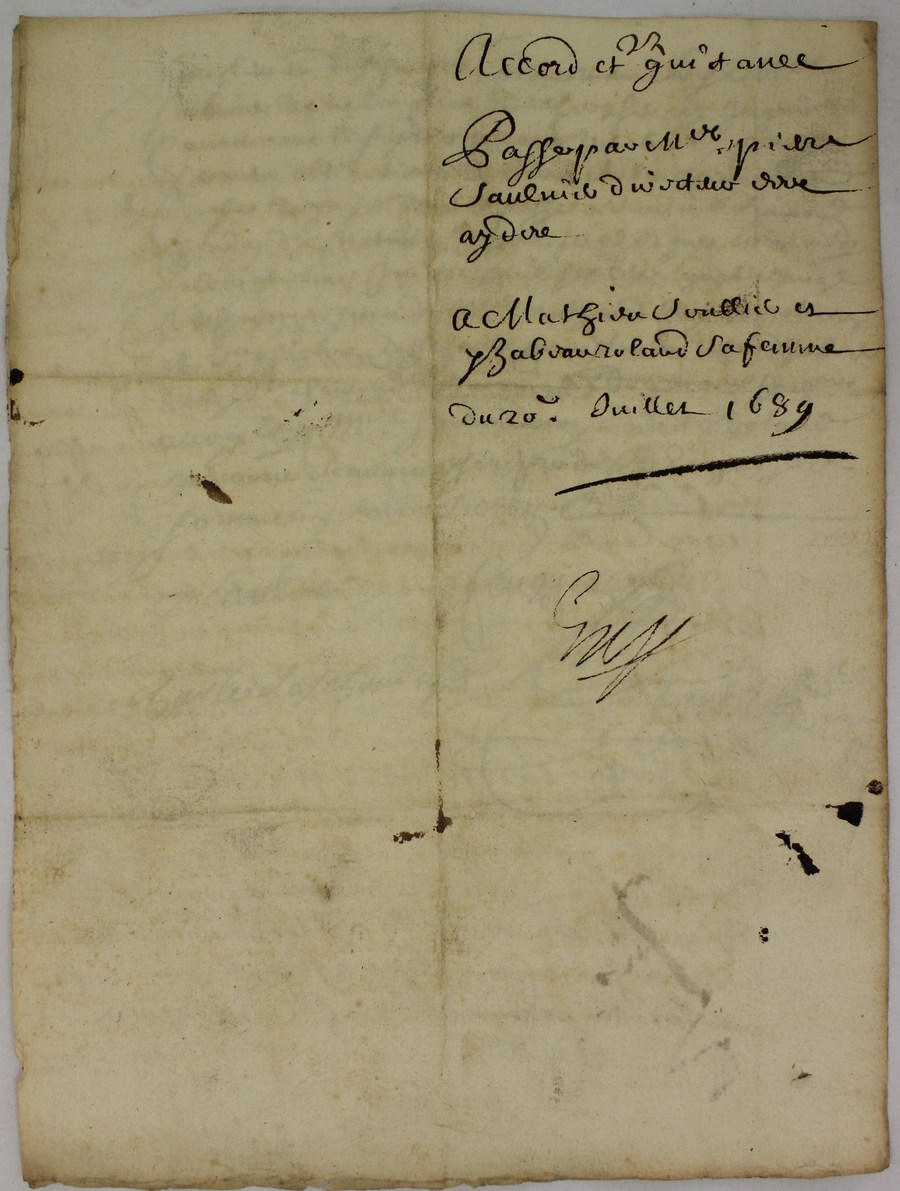 Accord et quistance
Passe par Mre pierre
Saulnie directeur des
aydes
a Mathieu Soullie et
yzabeau roland Sa femme
du 20e. Juillet 1689